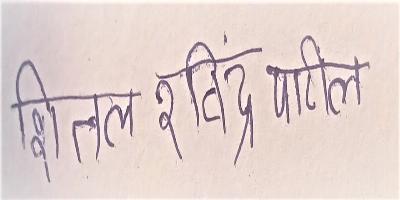 शितल रविंद्र पाटील